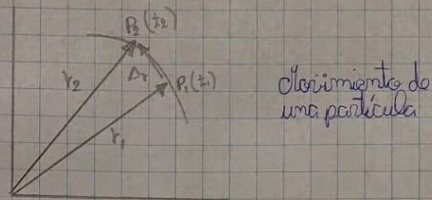 P₂(t₂)
r₂
Δr
P₁(t₁)
r₁
Movimiento de
una partícula